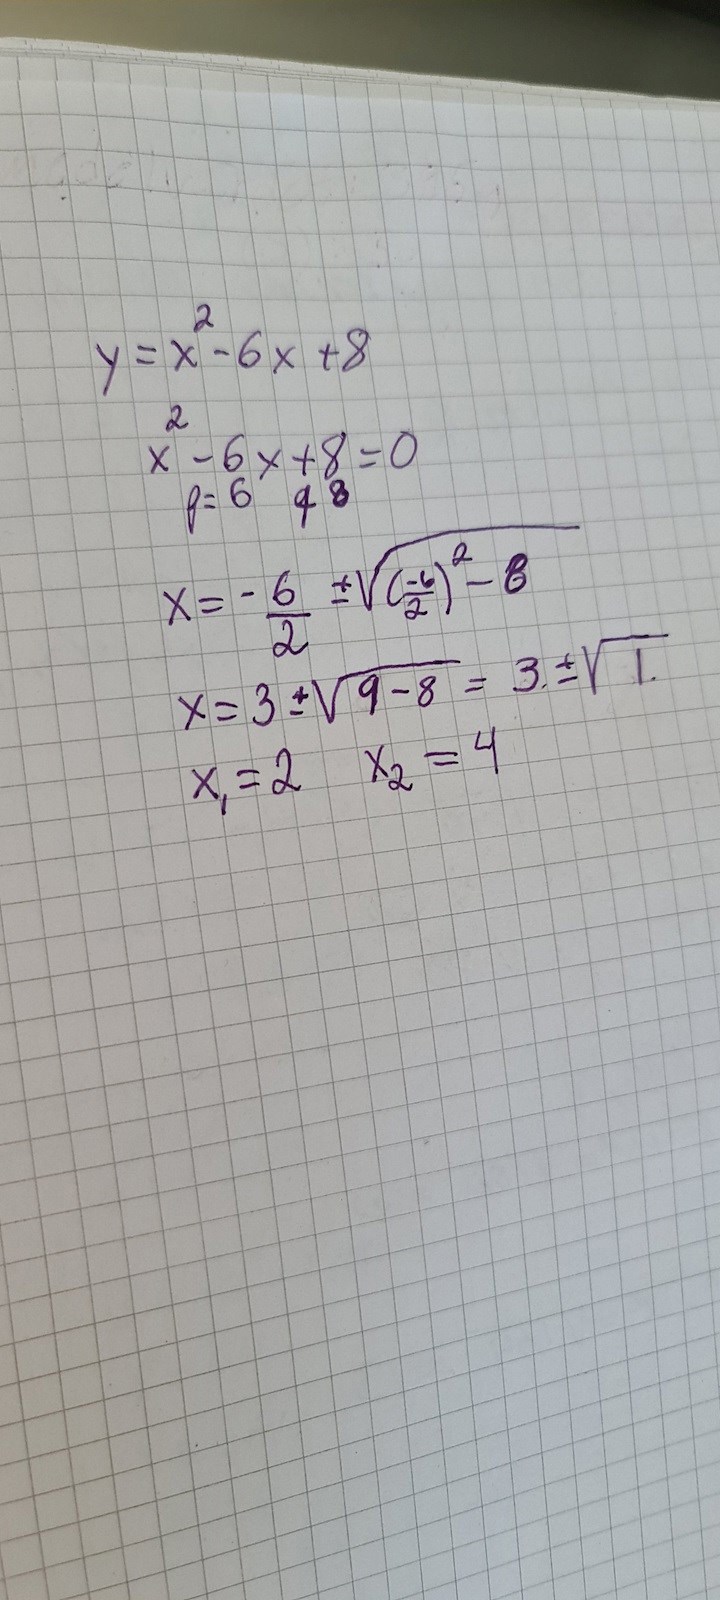 y = x² - 6x + 8
x² - 6x + 8 = 0
p = 6 q 8
x = - 6/2 ± √((-6/2)² - 8)
x = 3 ± √(9 - 8) = 3. ± √1.
x₁ = 2 x₂ = 4